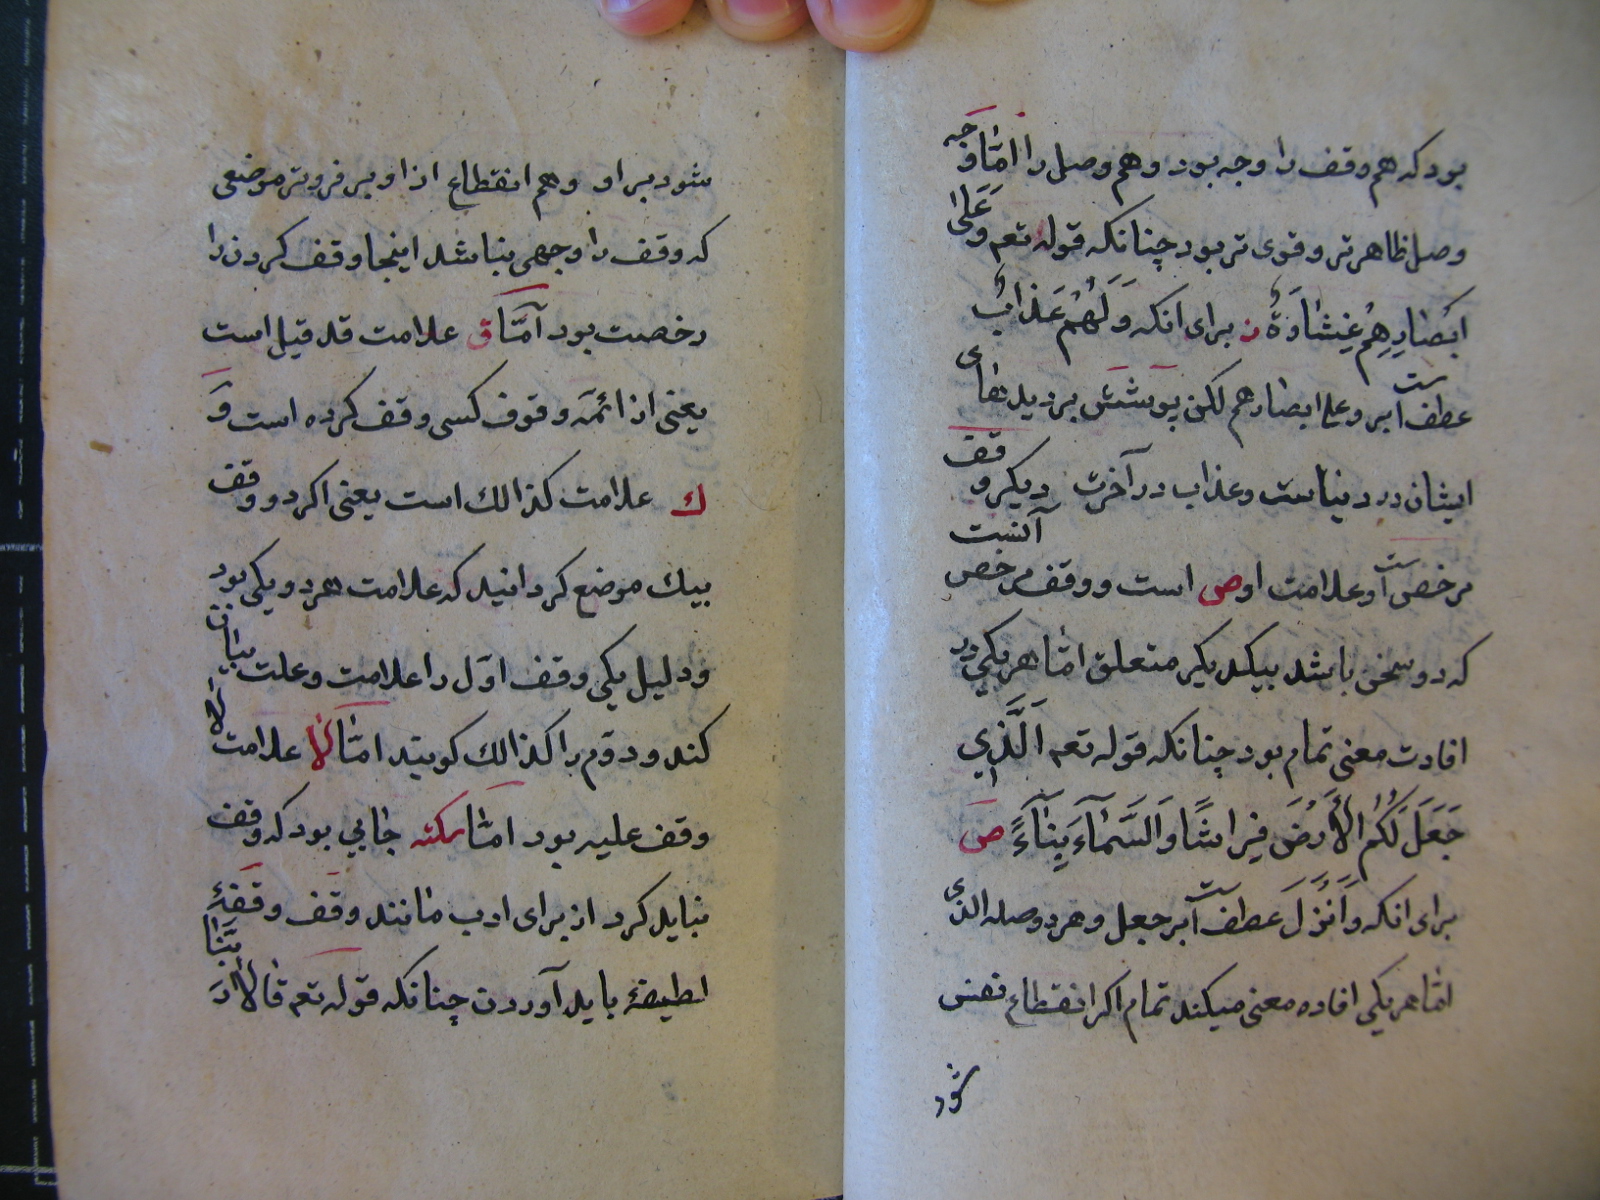 بود که هم وقف را وجه بود و هم وصل را امّا وَجه
وصل ظاهرتر و قوی تر بود چنانکه قوله تعم وَعَلیٰ
اَبْصَارِهِمْ غِشَاوَةٌ ز برای انکه وَلَهُمْ عَذَابٌ
عطف است بر وعلی ابصارهم لکن پوشش بر دیدهای
ایشان در دنیاست و عذاب در آخرت دیکر وقف
مرخص است و علامت او ص است و وقف مرخص آنست
که دو سخن باشد بیکدیکر متعلق امّا هر یکی در
افادت معنی تمام بود چنانکه قوله تعم اَلَّذِی
جَعَلَ لَکُمُ الْأَرْضَ فِرَاشًا وَالسَّمَآءَ بِنَآءً ص
برای انکه وَاَنْزَلَ عطف است بر جعل و هر دو صله الذی
امّا هر یکی افاده معنی میکند تمام اکر انقطاع نفس
شود
شود بر او و هم انقطاع از او بر فروتر موضعی
که وقف را وجهی نباشد اینجا وقف کردن را
رخصت بود آمّا ق علامت قد قیل است
یعنی از ائمّه وقوف کسی وقف کرده است وَ
ك علامت کذالك است یعنی اکر دو وقف
بیك موضع کردانید که علامت هر دو یکی بود
و دلیل یکی وقف اوّل را علامت و علت بیان
کند و دوّم را کذالك کویند امّا لا علامت لا
وقف علیه بود امّا سکته جایی بود که وقف
نباید کرد از برای ادب مانند وقف وقفهٔ
لطیفهٔ باید آوردن چنانکه قوله تعم قَالَا رَبَّنَا